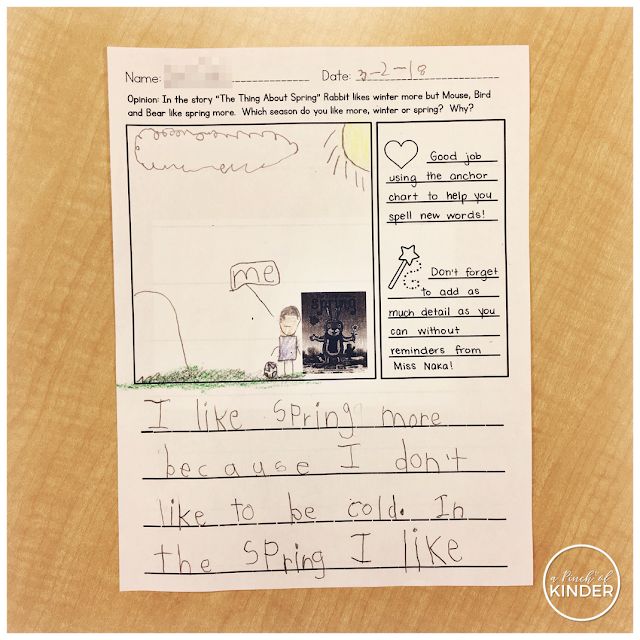 Name:
Date: 3-2-18
Opinion: In the story "The Thing About Spring" Rabbit likes winter more but Mouse, Bird
and Bear like spring more. Which season do you like more, winter or spring? Why?
me
spring
Good job
using the anchor
chart to help you
spell new words!
Don't forget
to add as
much detail as you
can without
reminders from
Miss Naka!
I like spring more
because I don't
like to be cold. In
the spring I like
a Pinch of
KINDER